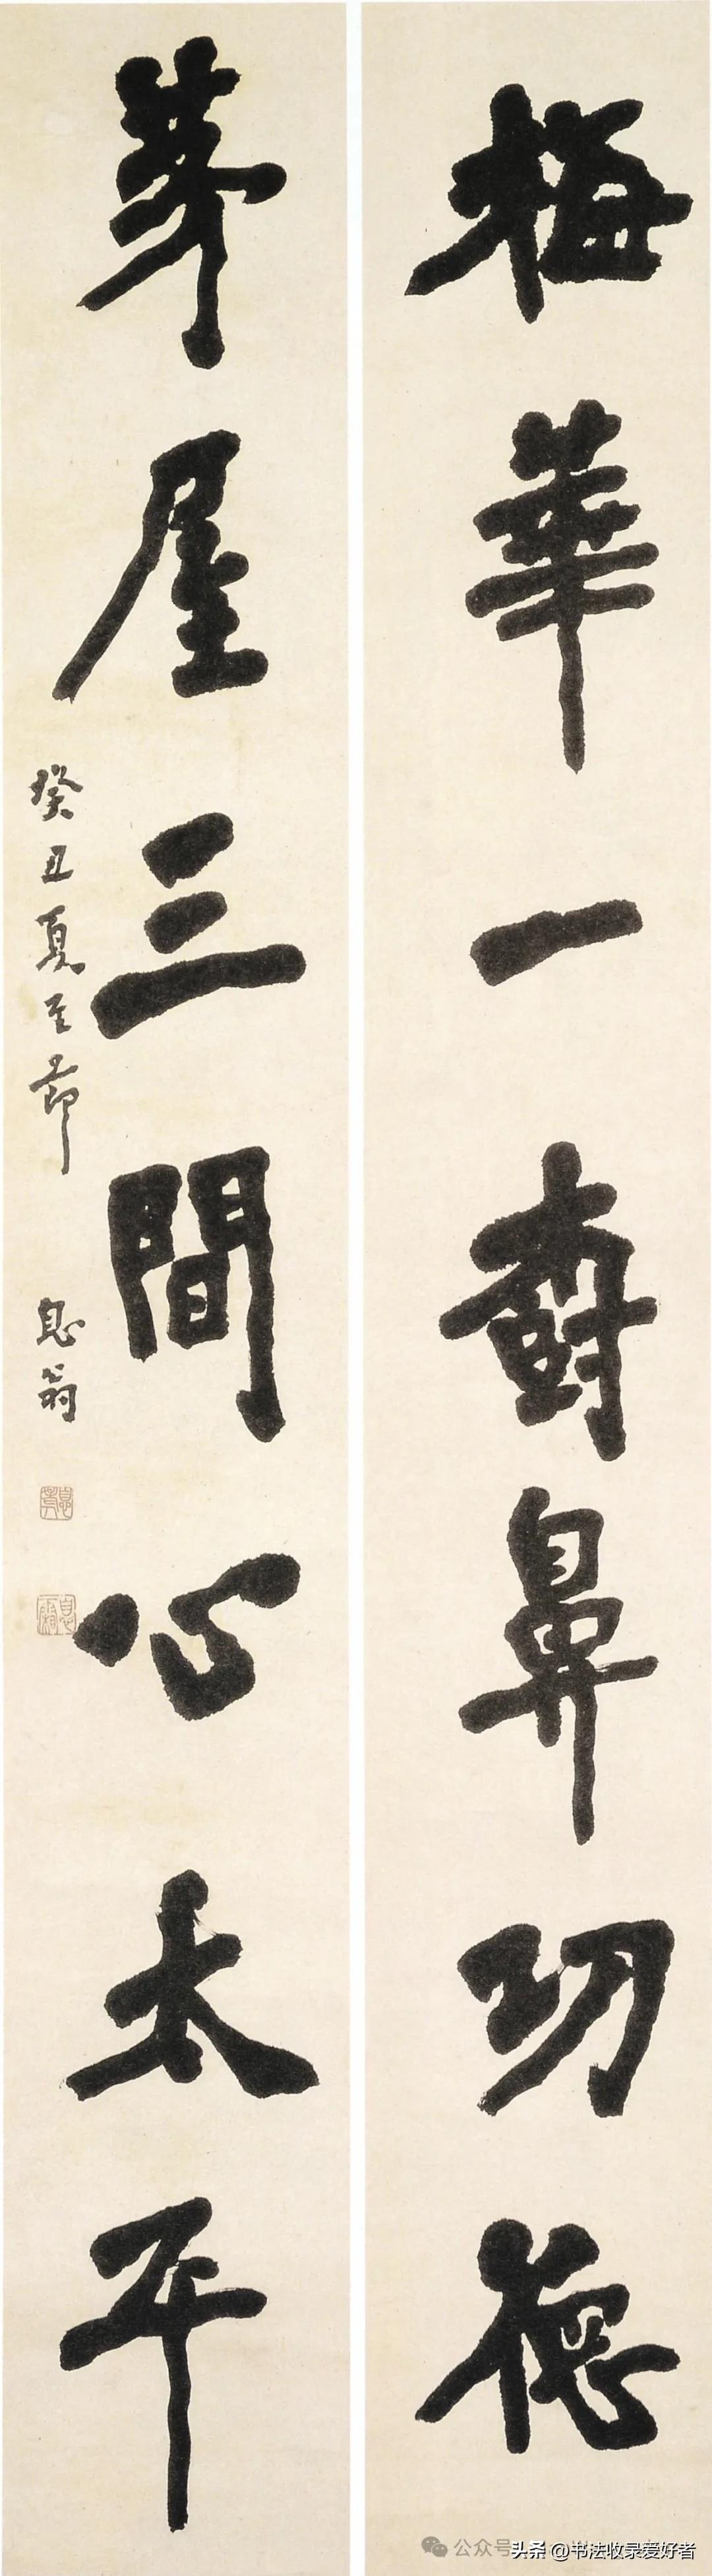 梅華一樹鼻功德
茅屋三間心太平
癸丑夏至節 息翁
息霜
公众号
头条 @书法收录爱好者